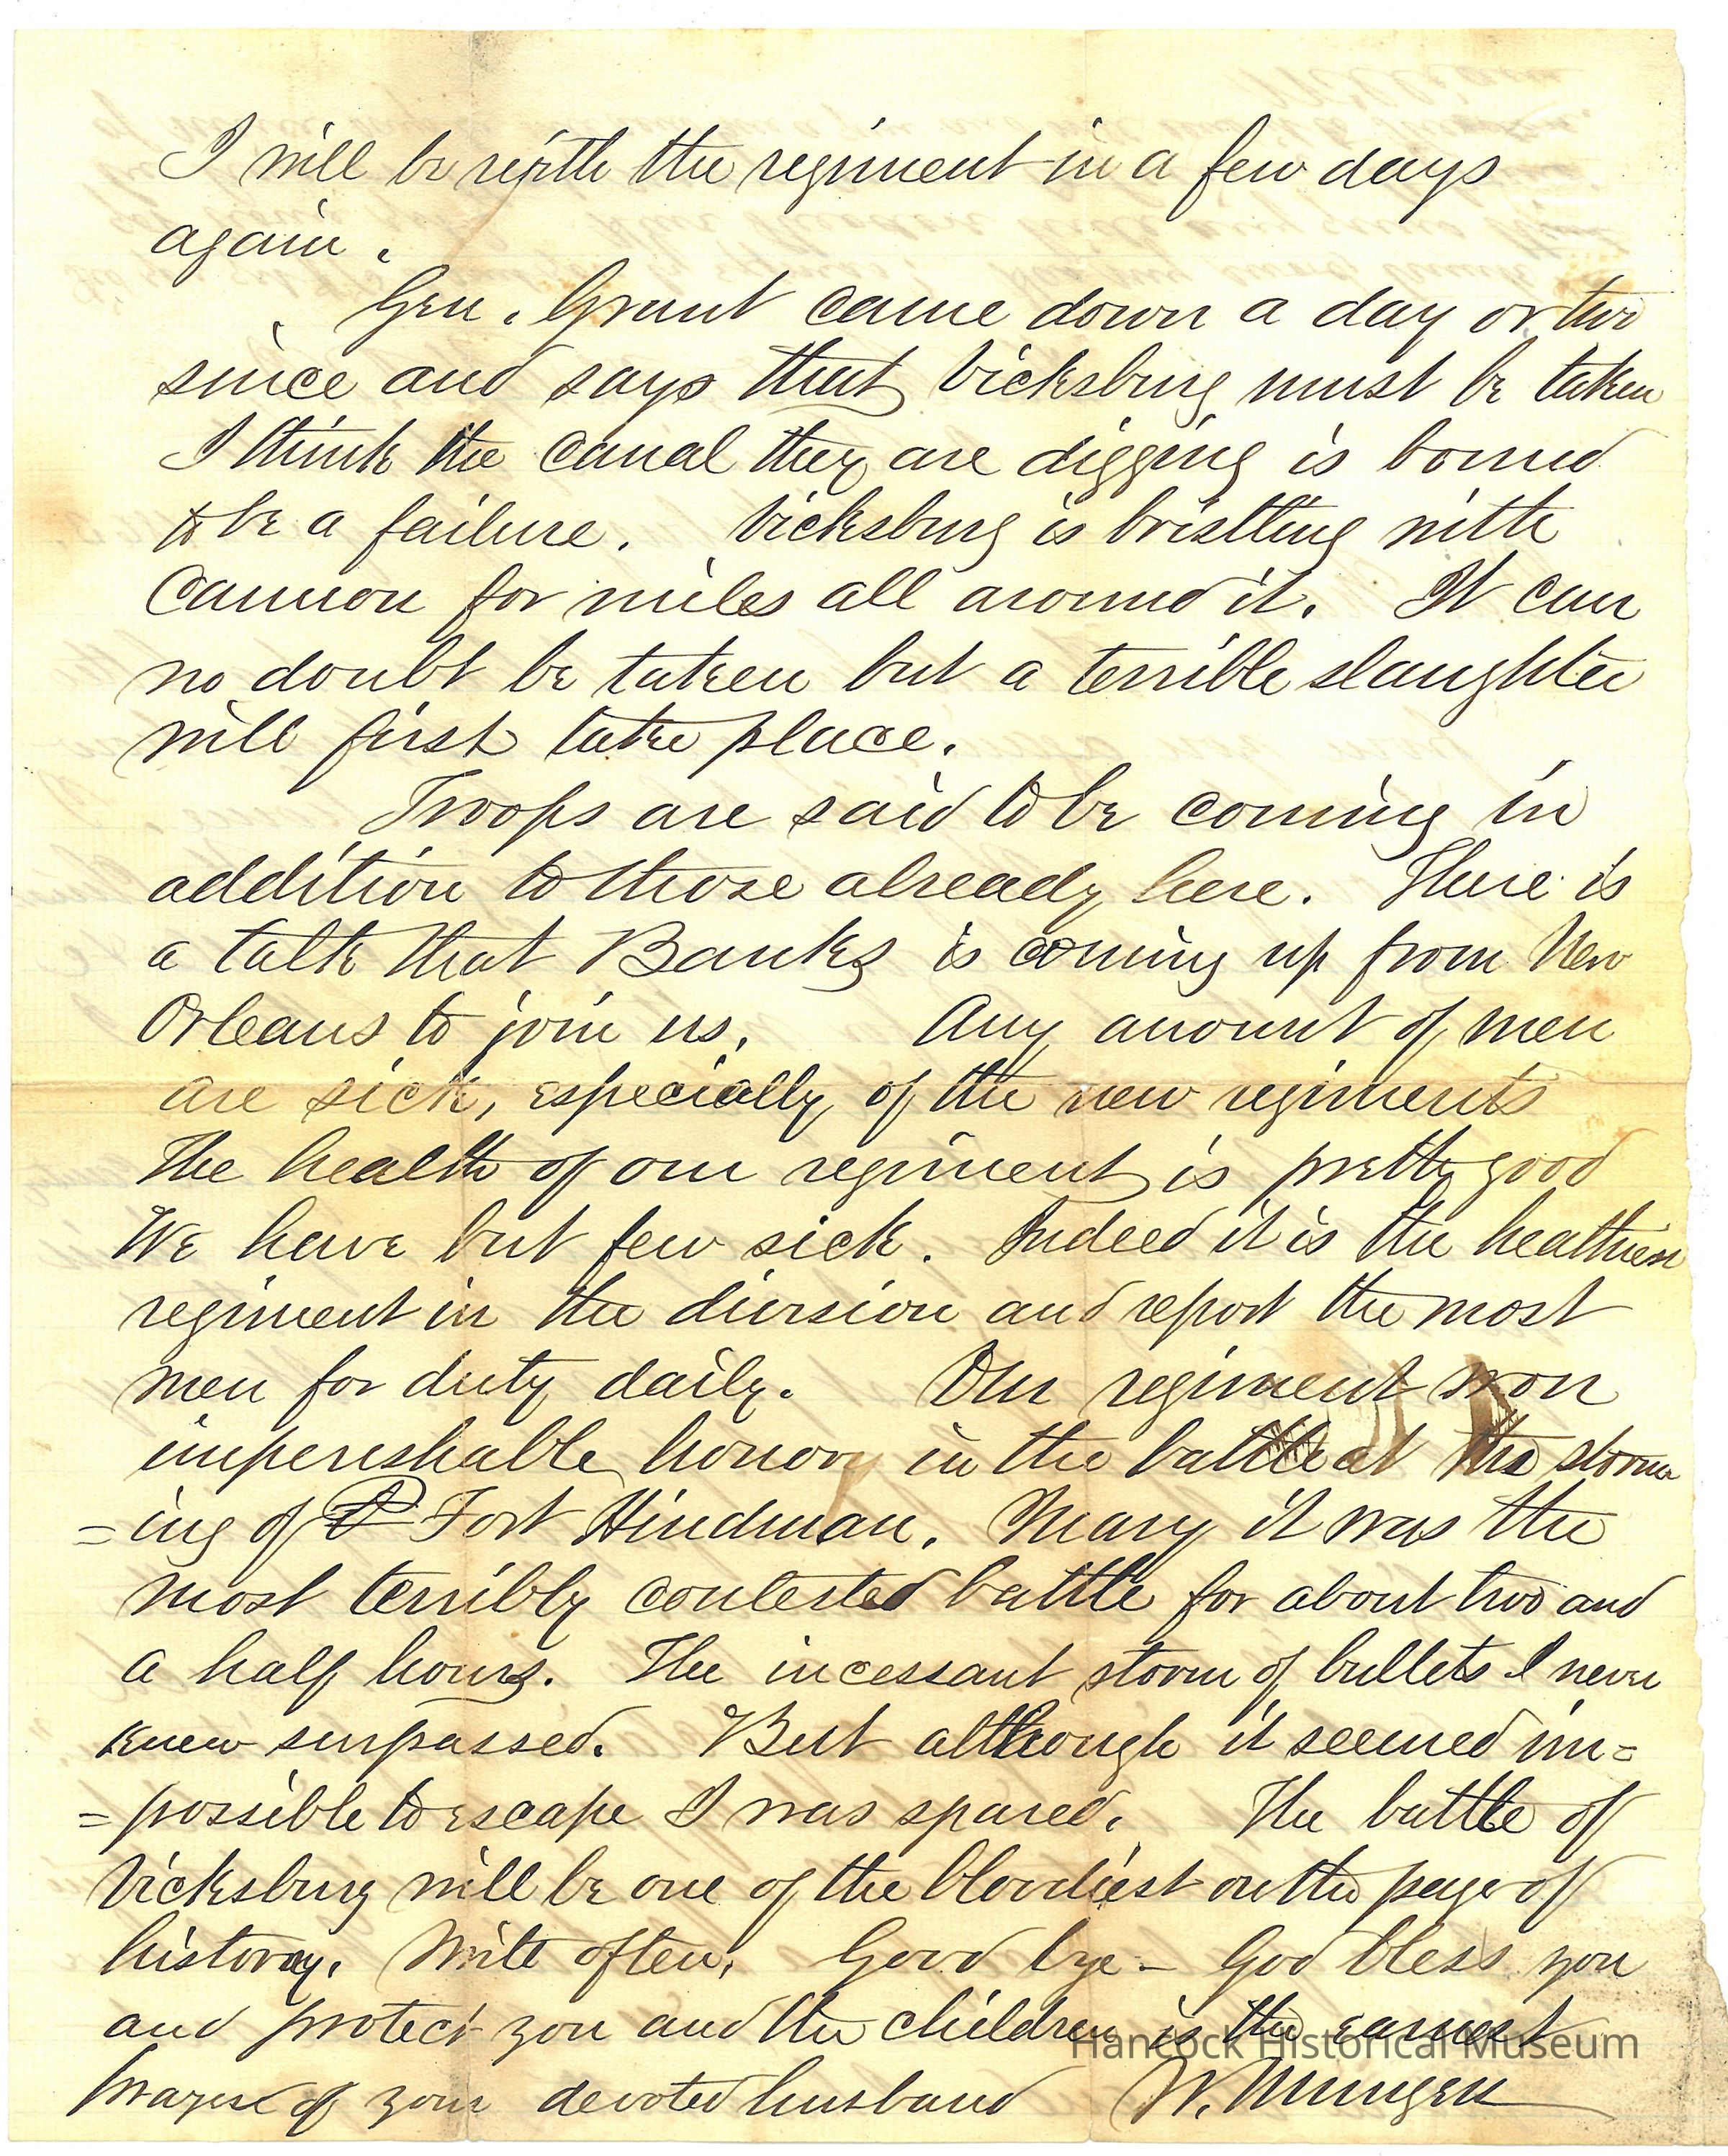 I will be with the regiment in a few days
again.
Gen. Grant came down a day or two
since and says that Vicksburg must be taken
I think the canal they are digging is bound
to be a failure. Vicksburg is bristling with
cannon for miles all around it. It can
no doubt be taken but a terrible slaughter
will first take place.
Troops are said to be coming in
addition to those already here. There is
a talk that Banks is coming up from New
Orleans to join us. Any amount of men
are sick, especially of the new regiments
The health of our regiment is pretty good
We have but few sick. Indeed it is the healthiest
regiment in the division and report the most
men for duty daily. Our regiment won
imperishable honor in the battle at the storm
=ing of Fort Hindman. Mary it was the
most terribly contested battle for about two and
a half hours. The incessant storm of bullets I never
knew surpassed. But although it seemed im=
=possible to escape I was spared. The battle of
Vicksburg will be one of the bloodiest on the page of
history. Write often. Good bye - God bless you
and protect you and the children is the earnest
prayer of your devoted husband W. Mungen
Hancock Historical Museum